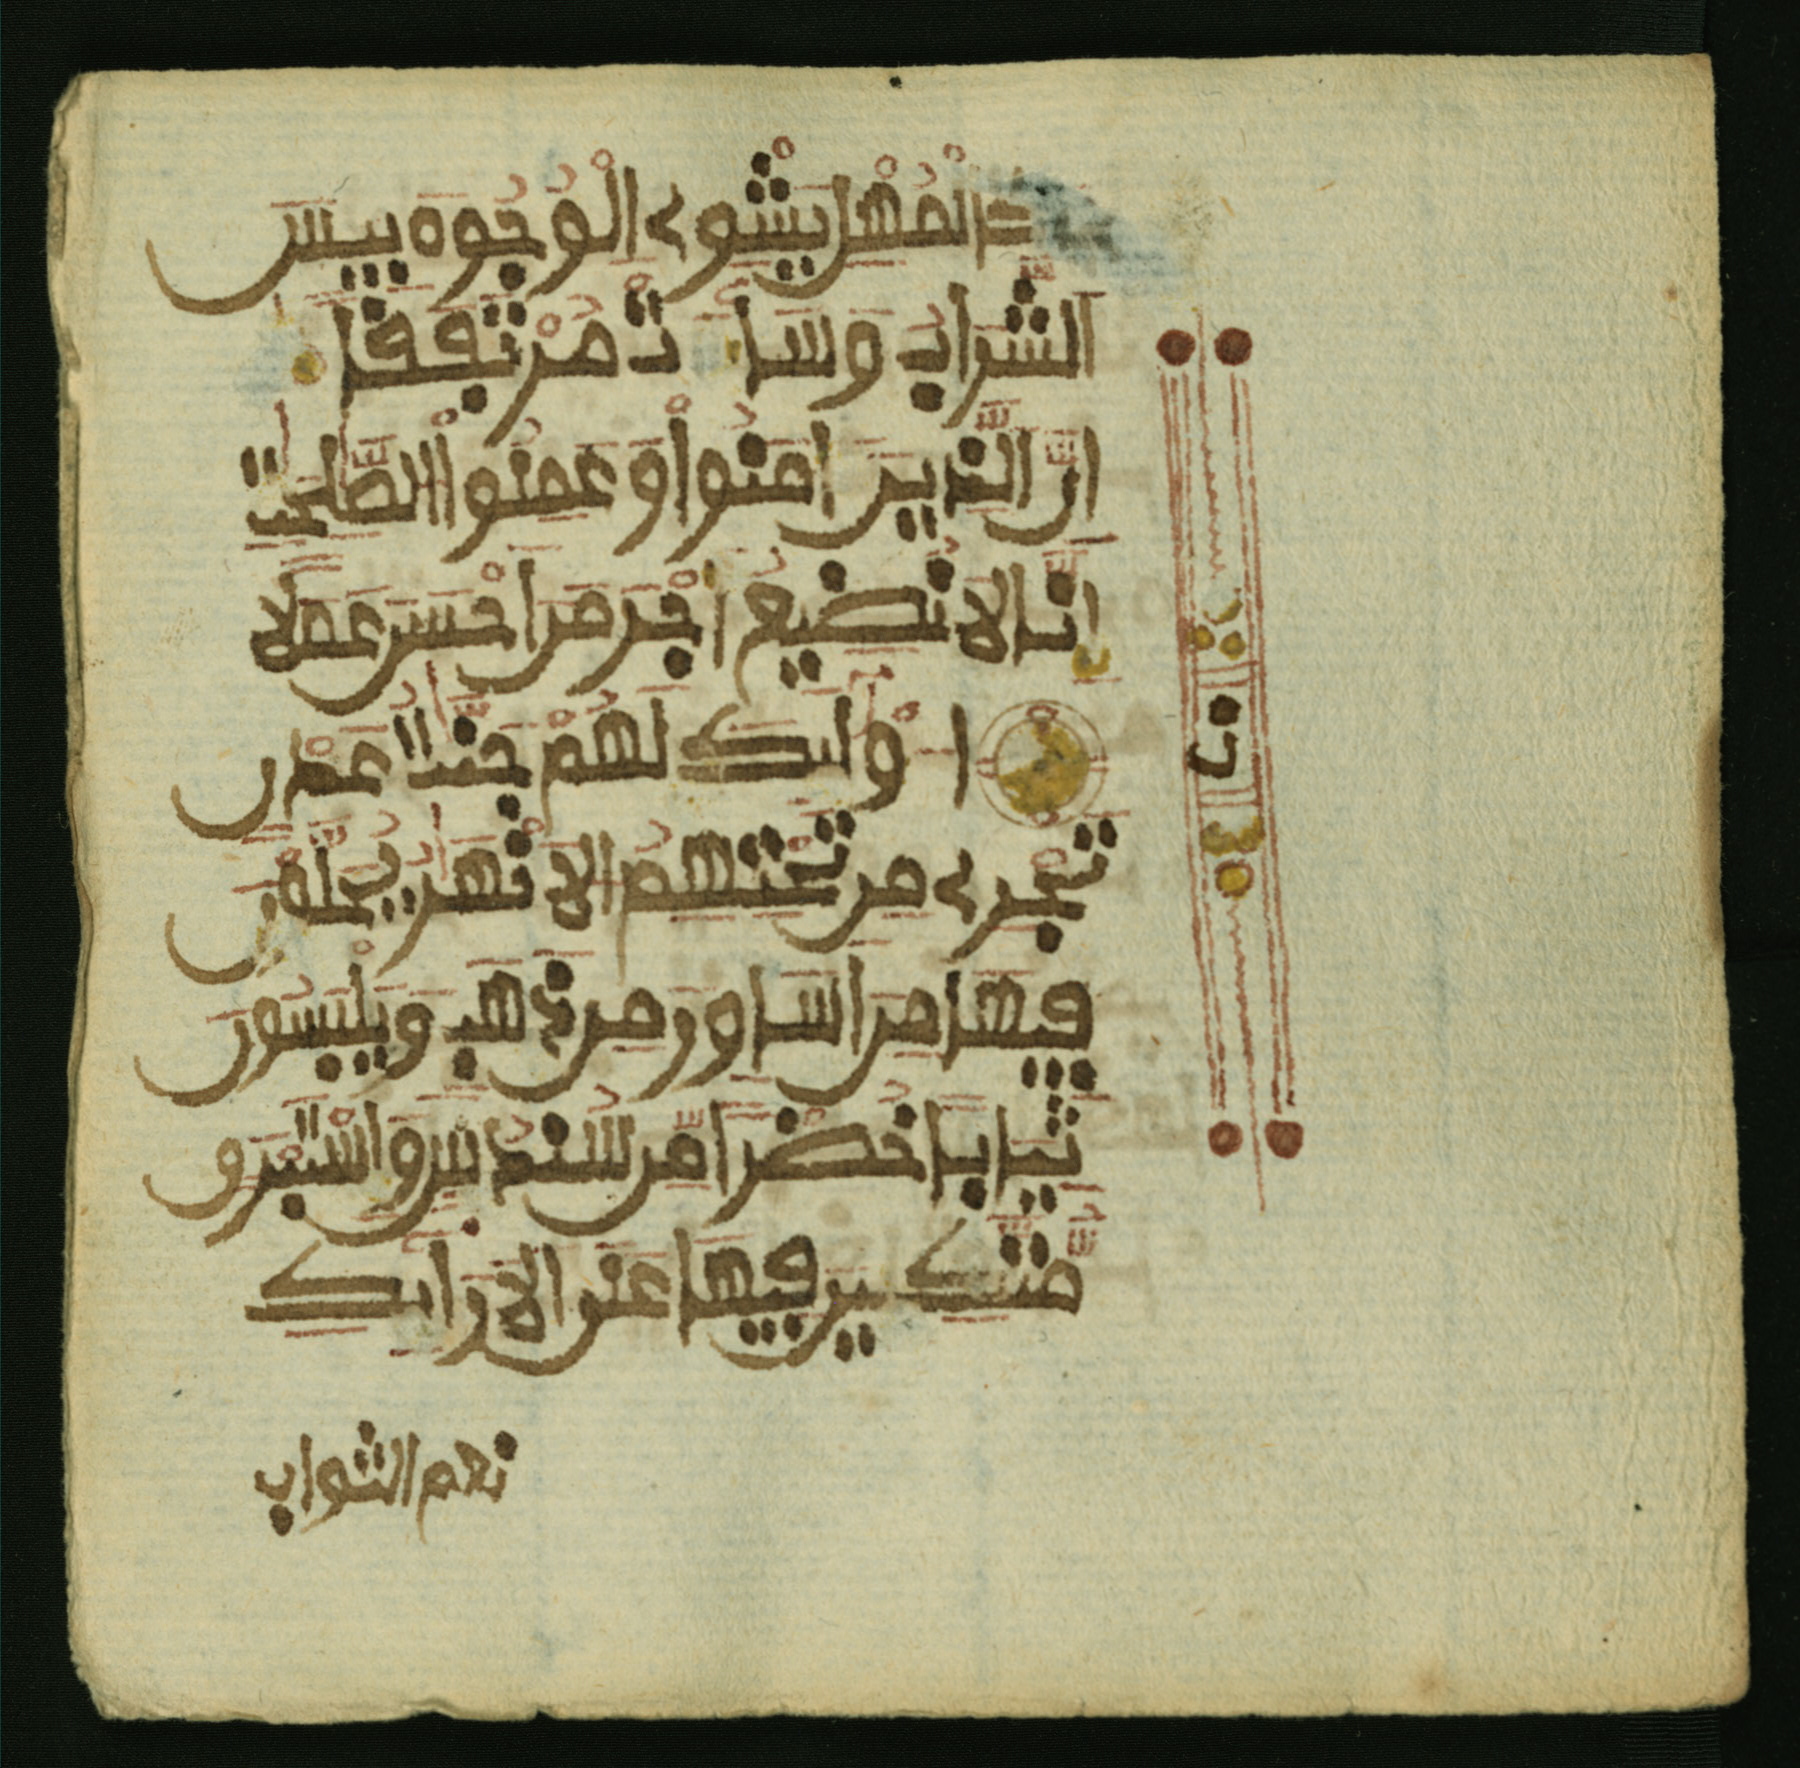 كالمُهْلِ يَشْوِے الْوُجُوهَ بِيسَ
الشَّرَابُ وَسَآءَتْ مُرْتَفَقًا
اِنَّ الذِينَ ءَامَنُواْ وَعَمِلُواْ الصَّلِحَتِ
اِنَّا لَا نُضِيعُ أَجْرَ مَنَ اَحْسَنَ عَمَلًا
اُوْلَئِكَ لَهُمْ جَنَّتُ عَدْنٍ
تَجْرِے مِن تَحْتِهِمُ الَانْهَرُ يُحَلَّوْنَ
فِيهَا مِنَ اَسَاوِرَ مِن ذَهَبٍ وَيَلْبَسُونَ
ثِيَابًا خُضْرًا مِّن سُندُسٍ وَإِسْتَبْرَقٍ
مُّتَّكِئِينَ فِيهَا عَلَى الَارَآئِكِ
نعم الثواب